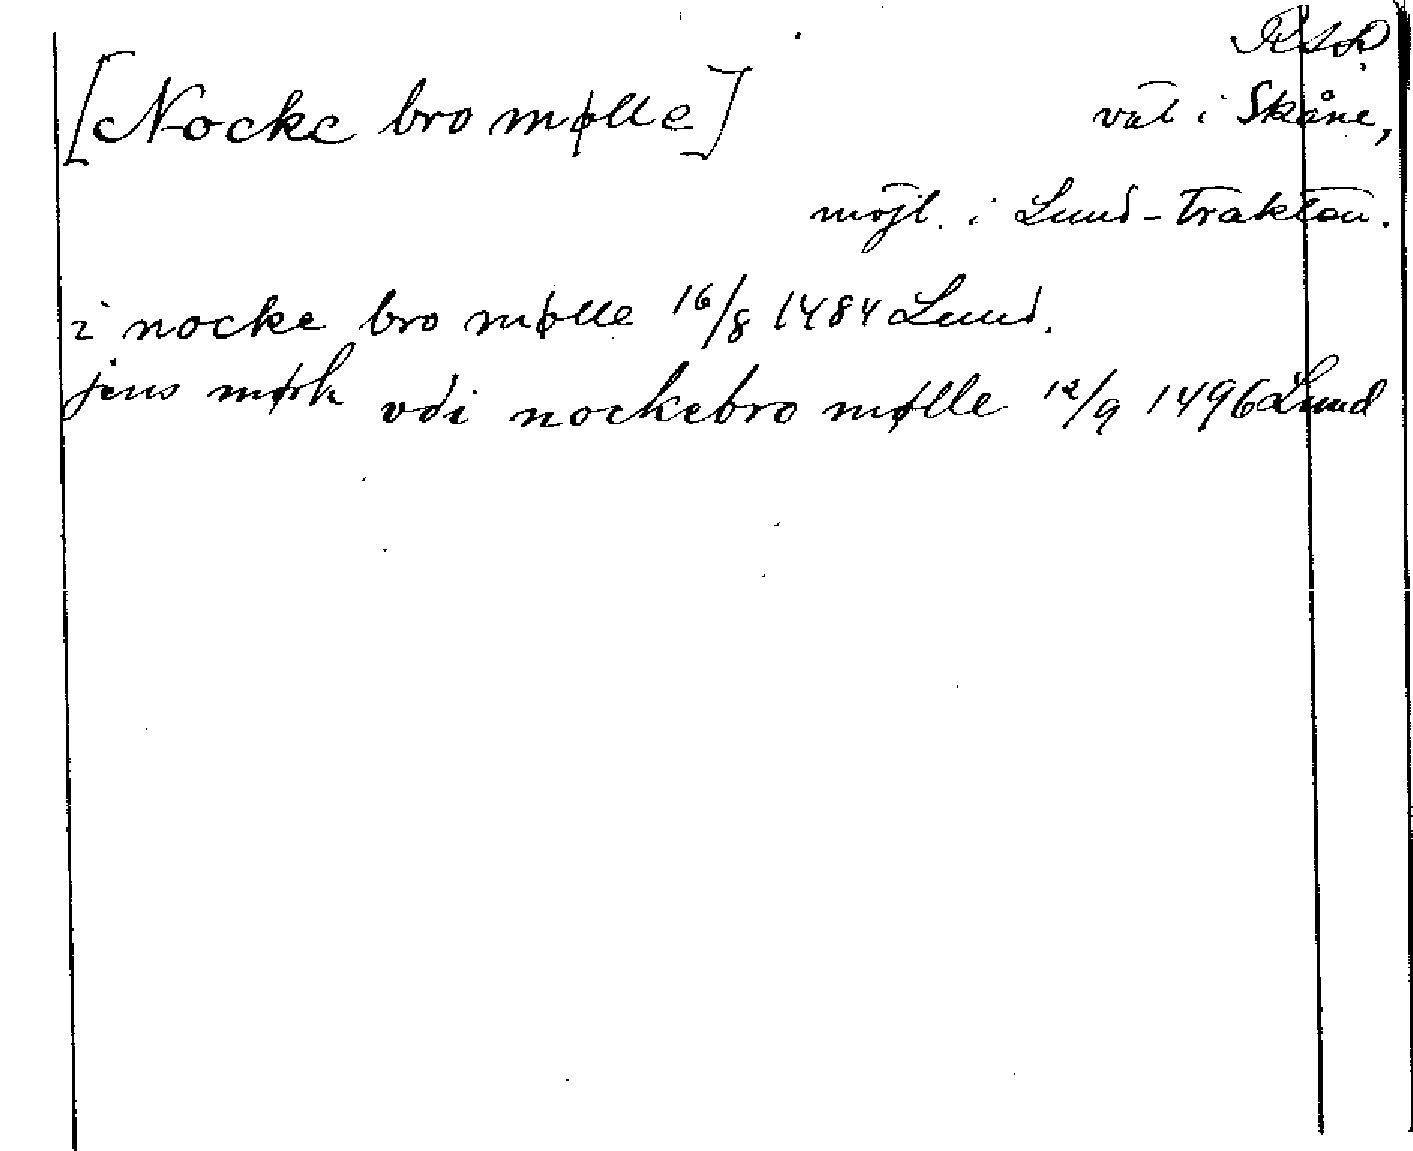 [Nocke bro mølle]
väl i Skåne,
möjl. i Lund-trakten.
i nocke bro mølle 16/8 1484 Lund.
jens mørk vdi nockebro mølle 12/9 1496 Lund